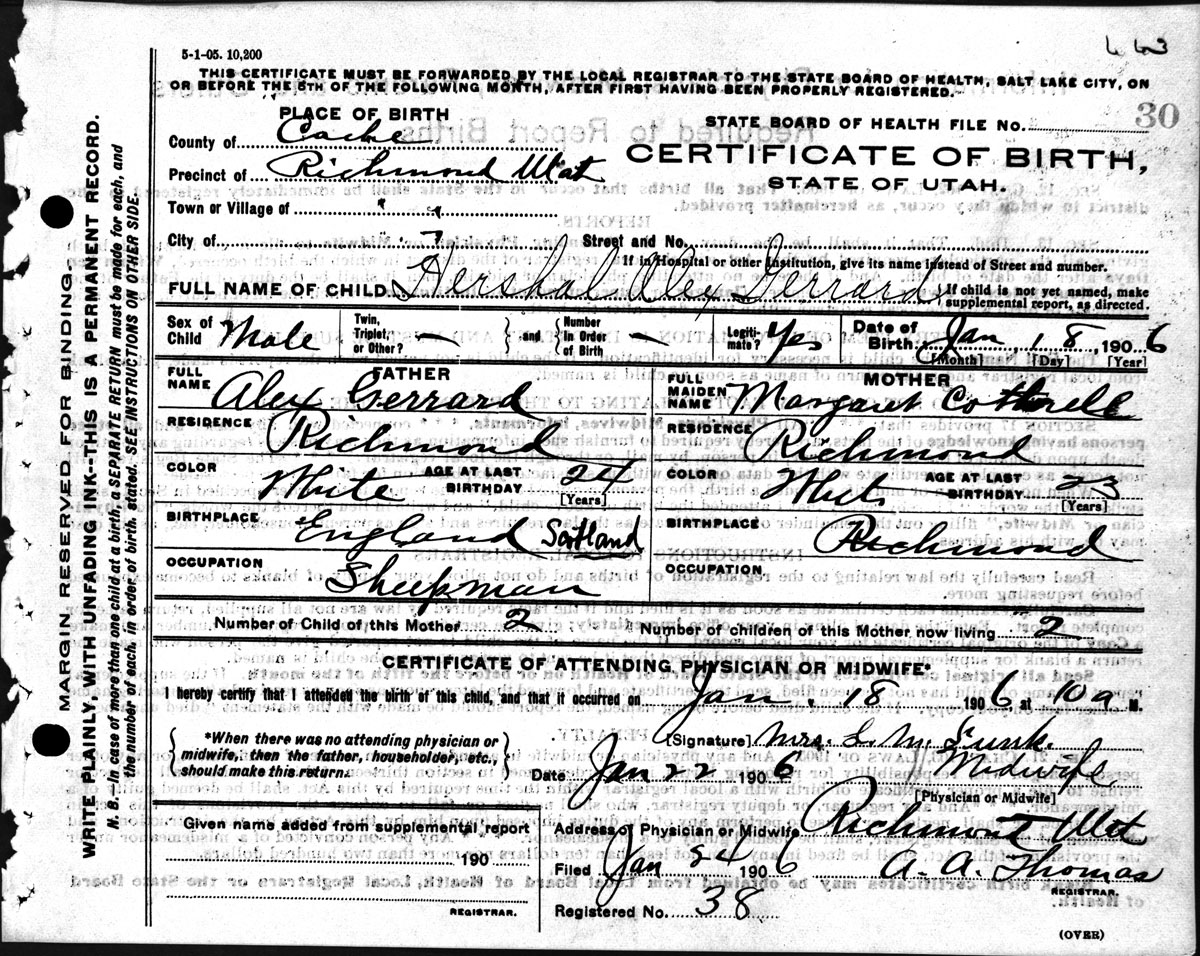 443
5-1-05. 10,200
THIS CERTIFICATE MUST BE FORWARDED BY THE LOCAL REGISTRAR TO THE STATE BOARD OF HEALTH, SALT LAKE CITY, ON
OR BEFORE THE 5TH OF THE FOLLOWING MONTH, AFTER FIRST HAVING BEEN PROPERLY REGISTERED.
PLACE OF BIRTH
STATE BOARD OF HEALTH FILE No. 30
County of Cache
CERTIFICATE OF BIRTH,
Precinct of Richmond Utah
STATE OF UTAH.
Town or Village of " "
City of " Street and No.
If in Hospital or other Institution, give its name instead of Street and number.
FULL NAME OF CHILD Hershal Alex Gerrard { If child is not yet named, make
supplemental report, as directed.
Sex of Child Male Twin, Triplet, or Other? — } and { Number in Order of Birth — Legitimate? Yes Date of Birth. Jan 18, 1906
[Month] [Day] [Year]
FATHER
FULL NAME Alex Gerrard
RESIDENCE Richmond
COLOR White AGE AT LAST BIRTHDAY 24
[Years]
BIRTHPLACE England Scotland
OCCUPATION Sheepman
MOTHER
FULL MAIDEN NAME Margaret
RESIDENCE Richmond
COLOR White AGE AT LAST BIRTHDAY 23
[Years]
BIRTHPLACE Richmond
OCCUPATION
Number of Child of this Mother 2 Number of children of this Mother now living 2
CERTIFICATE OF ATTENDING PHYSICIAN OR MIDWIFE*
I hereby certify that I attended the birth of this child, and that it occurred on Jan. 18 1906 at 10 a M.
{ *When there was no attending physician or
midwife, then the father, householder, etc.,
should make this return. }
[Signature] Mrs. L. M. Funk.
Date Jan 22 1906 Midwife
[Physician or Midwife]
Given name added from supplemental report
190
REGISTRAR.
Address of Physician or Midwife Richmond Utah
Filed Jan 24 1906 A. A. Thomas
REGISTRAR.
Registered No. 38
(OVER)
MARGIN RESERVED FOR BINDING.
WRITE PLAINLY, WITH UNFADING INK--THIS IS A PERMANENT RECORD.
N. B.--In case of more than one child at a birth, a SEPARATE RETURN must be made for each, and
the number of each, in order of birth, stated. SEE INSTRUCTIONS ON OTHER SIDE.